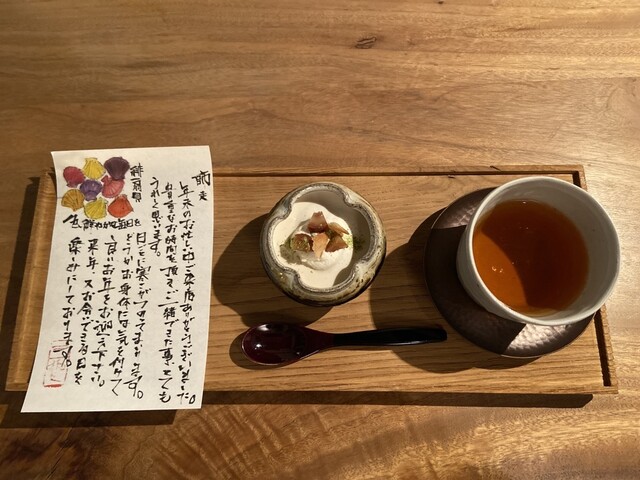 師走
年末のお忙しい中ご来店ありがとうございました。
貴重なお時間を頂きご一緒できた事とても
うれしく思います。
緋扇貝
色鮮やかな毎日を
日ごとに寒さがましてまいります。
どうかお身体にお気を付けて
良いお年をお迎え下さい。
来年、又お会いできる日を
楽しみにしております。